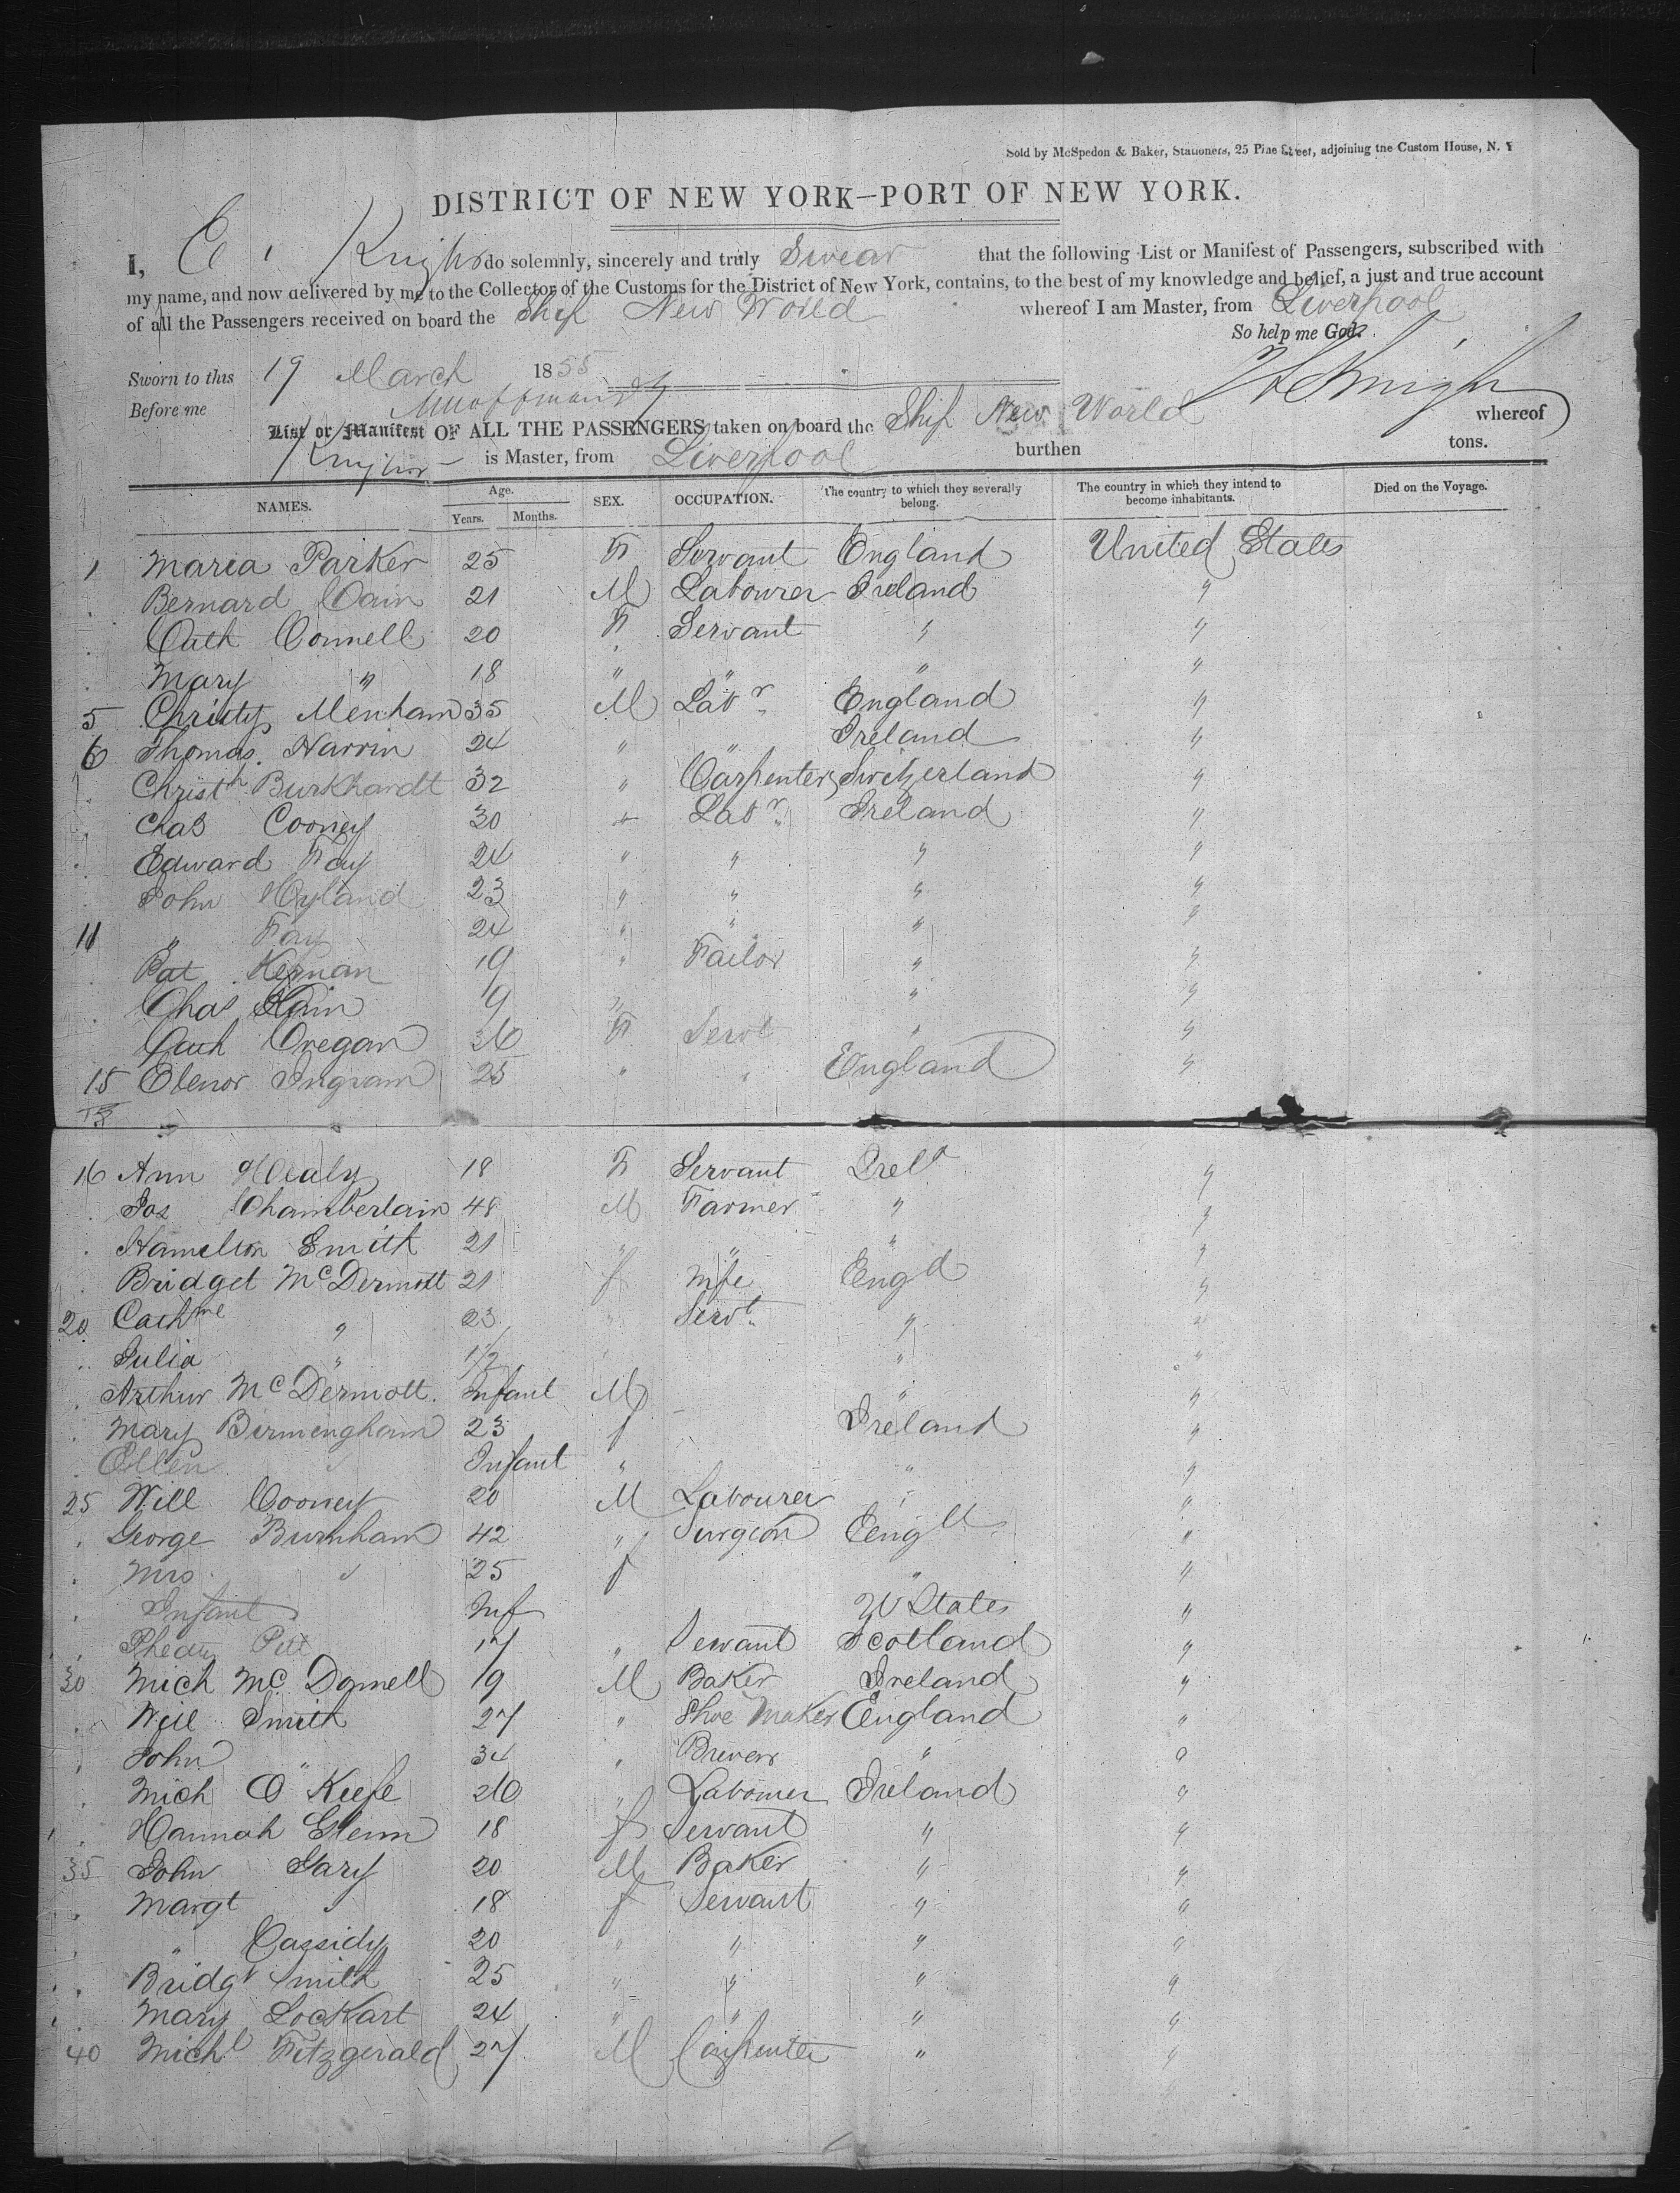 Sold by McSpedon & Baker, Stationers, 25 Pine Street, adjoining the Custom House, N. Y
DISTRICT OF NEW YORK—PORT OF NEW YORK.
I, E. Knight do solemnly, sincerely and truly Swear that the following List or Manifest of Passengers, subscribed with
my name, and now delivered by me to the Collector of the Customs for the District of New York, contains, to the best of my knowledge and belief, a just and true account
of all the Passengers received on board the Ship New World whereof I am Master, from Liverpool
So help me God.
Sworn to this 19 March 1855
Before me
List or Manifest OF ALL THE PASSENGERS taken on board the Ship New World whereof
Knight is Master, from Liverpool burthen tons.
NAMES. Age. Years. Months. SEX. OCCUPATION. The country to which they severally belong. The country in which they intend to become inhabitants. Died on the Voyage.
1 Maria Parker 25 F Servant England United States
Bernard Cain 21 M Labourer Ireland "
Cath Connell 20 F Servant " "
Mary " 18 " " " "
5 Christy Menham 35 M Labr England "
6 Thomas Harrin 24 " " Ireland "
Christn Burkhardt 32 " Carpenter Switzerland "
Chas Cooney 30 " Labr Ireland "
Edward Fay 24 " " " "
John Hyland 23 " " " "
11 " Fay 24 " " " "
Pat Kernan 19 " Tailor " "
Chas Kain 9 " " "
Cath Oregan 36 F Servt " "
15 Elenor Ingram 25 " " England "
16 Ann Healy 18 F Servant Ireld "
Jos Chamberlain 48 M Farmer " "
Hamelton Smith 21 " " " "
Bridget McDermott 21 f Wife Engd "
20 Cathme " 23 " Servt " "
Julia " 1/2 " " "
Arthur McDermott Infant M " "
Mary Birmengham 23 f Ireland "
Ellen " Infant " " "
25 Will Cooney 20 M Labourer " "
George Burnham 42 " Surgeon Engld "
Mrs " 25 f " "
Infant Inf U States "
Pitt 17 " Servant Scotland "
30 Mich McDonnell 19 M Baker Ireland "
Will Smith 27 " Shoe Maker England "
John " 34 " Brewer " "
Mich O'Keefe 26 " Labourer Ireland "
Hannah Glenn 18 f Servant " "
35 John Gary 20 M Baker " "
Margt " 18 f Servant " "
" Cassidy 20 " " " "
Bridgt Smith 25 " " " "
Mary Lockart 24 " " " "
40 Michl Fitzgerald 27 M Carpenter " "